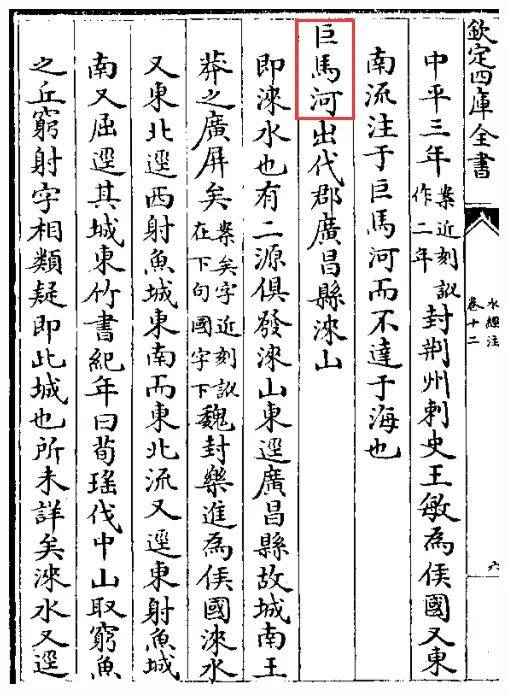 欽定四庫全書
水經注
卷十二
六
中平三年案近刻訛作二年封荆州刺史王敏為侯國又東
南流注于巨馬河而不達于海也
巨馬河出代郡廣昌縣淶山
即淶水也有二源俱發淶山東逕廣昌縣故城南王
莽之廣屏矣案矣字近刻訛在下句國字下魏封樂進為侯國淶水
又東北逕西射魚城東南而東北流又逕東射魚城
南又屈逕其城東竹書紀年曰荀瑤伐中山取窮魚
之丘窮射字相類疑即此城也所未詳矣淶水又逕